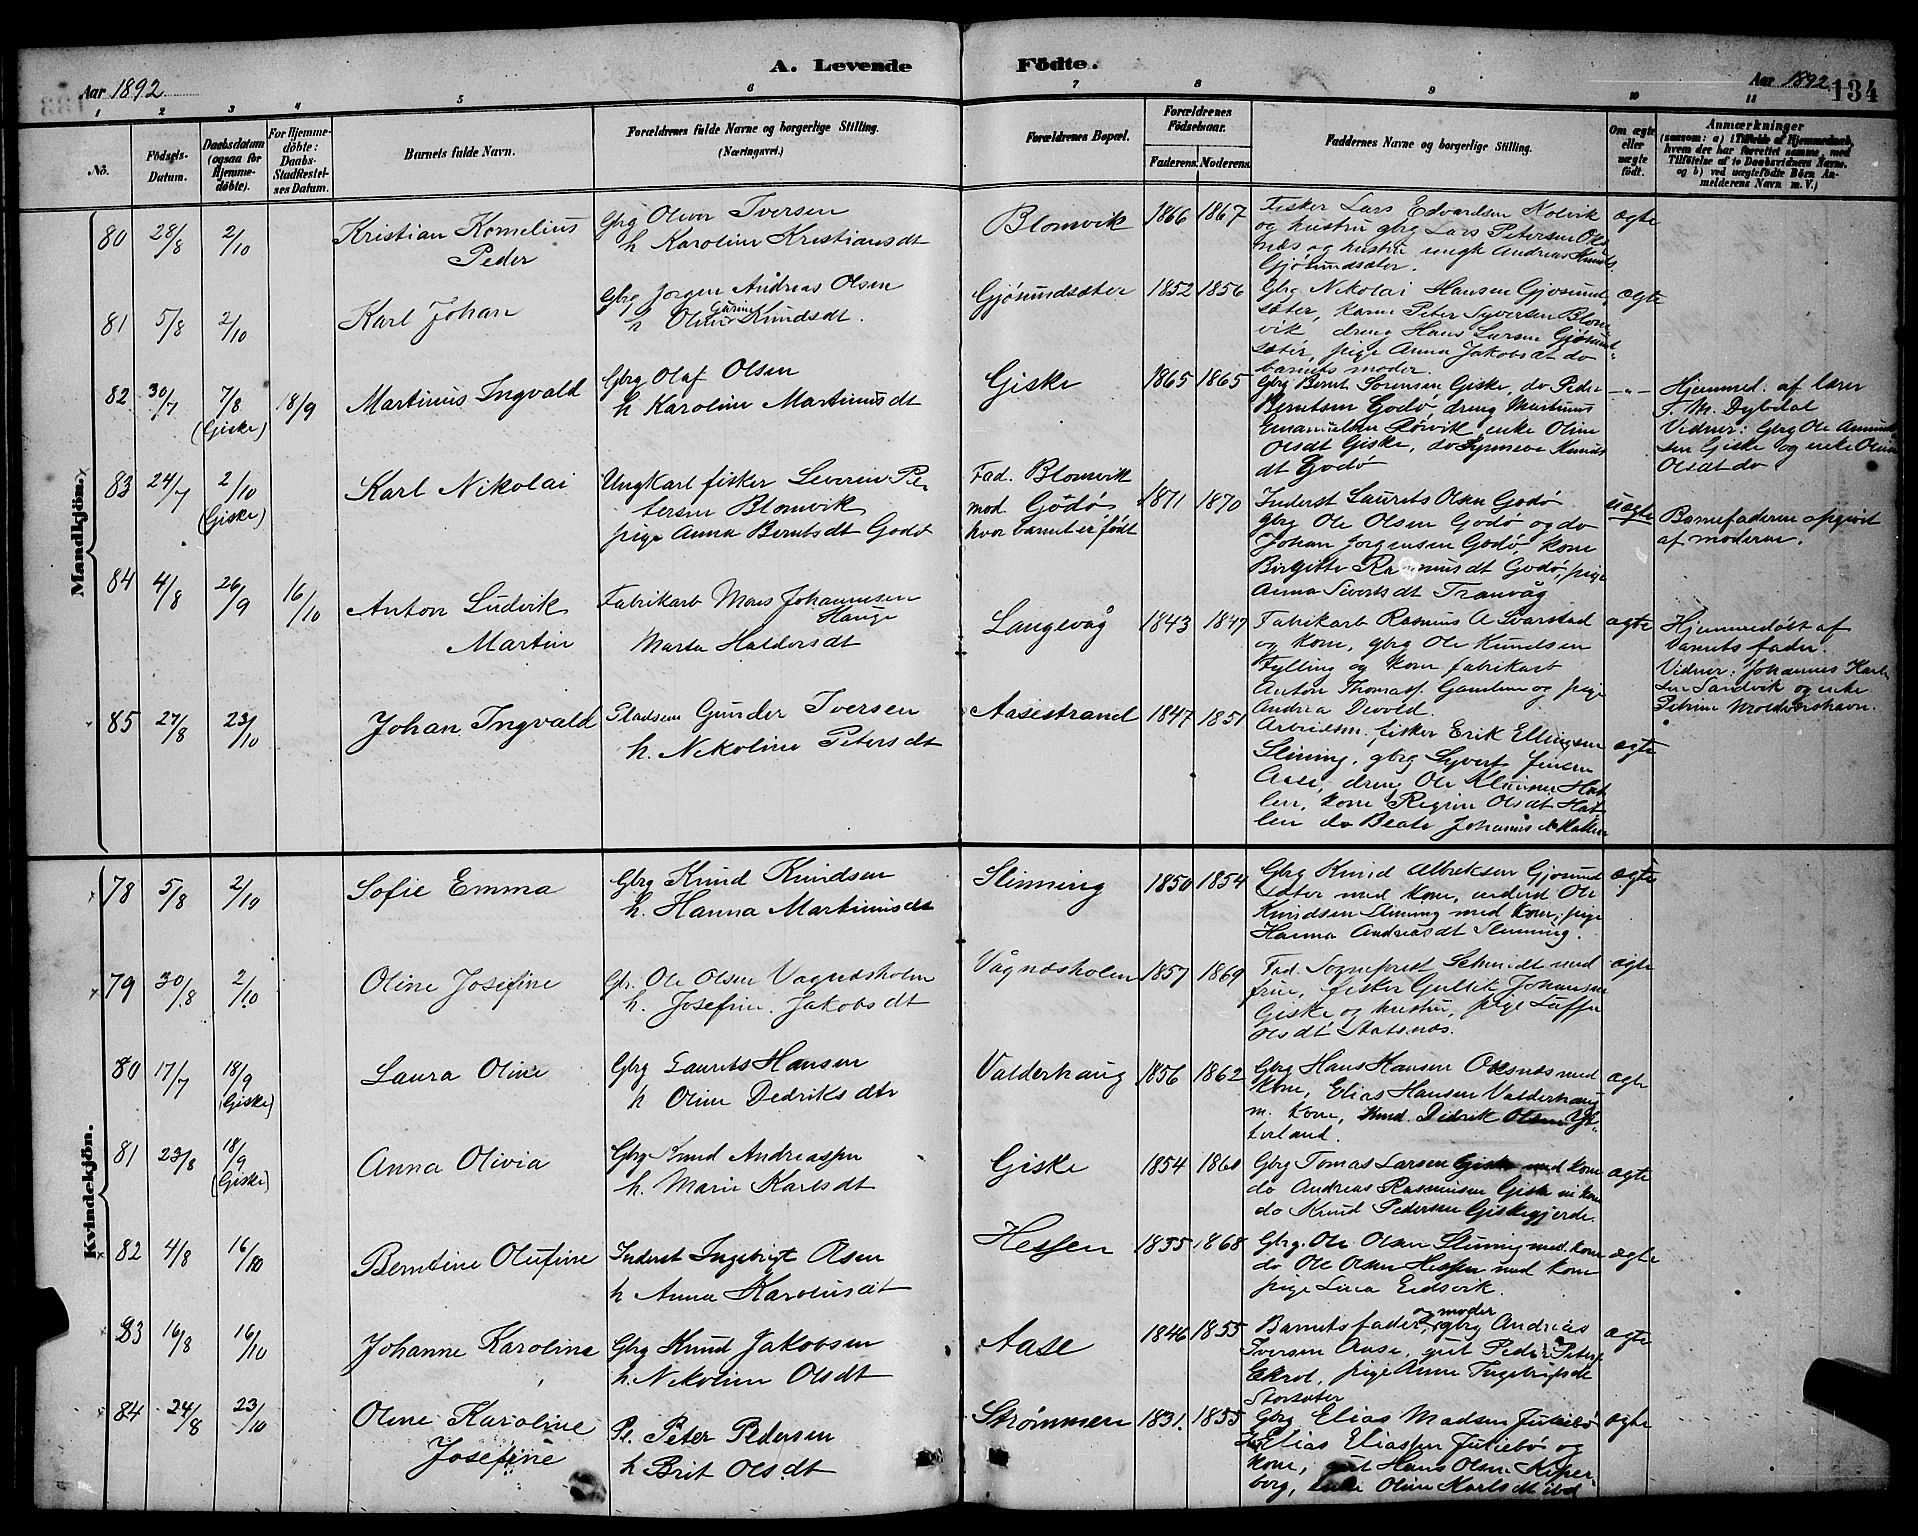 A. Levende Födte.
Aar 1892
Aar 1892 134
1 2 3 4 5 6 7 8 9 10 11
No.
Födsels-Datum.
Daabsdatum (ogsaa for Hjemmedöbte).
For Hjemmedöbte: Daabs-Stadfæstelses Datum.
Barnets fulde Navn.
Forældrenes fulde Navne og borgerlige Stilling. (Næringsvei.)
Forældrenes Bopæl.
Forældrenes Födselsaar.
Faderens. Moderens.
Faddernes Navne og borgerlige Stilling.
Om ægte eller uægte födt.
Anmærkninger
(saasom: a) i Tilfælde af Hjemmedaab, hvem der har forrettet samme, med Tilföielse af to Daabsvidners Navne, og b) ved uægtefödte Börn Anmelderens Navn m. V.)
Mandkjön.
80 28/8 2/10 Kristian Kornelius Peder
Gbrg Oliver Iversen
h Karoline Kristiansdt
Blomvik 1866 1867
Fisker Lars Edvardsen Molvik
og hustru gbrg Lars Petersen Oks
næs og hustru ungk Andreas Knuts.
Gjösundsæter.
ægte
81 5/8 2/10 Karl Johan
Gbrg Jørgen Andreas Olsen
h Oline Gurine Knudsdt.
Gjösundsæter 1852 1856
Gbrg Nikolai Hansen Gjösund
sæter, Karm Peter Syversen Blom
vik, dreng Hans Larsen Gjösund
sæter, pige Anna Jakobsdt do
barnets moder.
ægte
82 30/7 7/8 (Giske) 18/9 Martinus Ingvald
Gbrg Olaf Olsen
h Karoline Martinusdt
Giske 1865 1865
Gbrg Bernt Sørensen Giske, do Peder
Berntsen Godø, dreng Martinus
Emanuelsen Rörvik, enke Oline
Olsdt Giske, do Synneve Knuds
dt Godø
-"-
Hjemmed. af lærer
T. M. Dybdal
Vidner: Gbrg Ole Amund
sen Giske og enke Oline
Olsdt do
83 24/7 2/10 (Giske) Karl Nikolai
Ungkarl fisker Severin Pe
tersen Blomvik
pige Anna Berntsdt Godø
Fad. Blomvik
mod. Godø
hvor barnet er født
1871 1870
Inderst Laurits Olsen Godø
gbrg Ole Olsen Godø og do
Johan Jørgensen Godø, kone
Birgitte Rasmusdt Godø, pige
Anna Sivertsdt Tranvåg
uægte
Barnefaderen opgivet
af moderen.
84 4/8 26/9 16/10 Anton Ludvik Martin
Fabrikarb Mons Johannesen
Hauge
Marta Haldorsdt
Langevåg 1843 1847
Fabrikarb Rasmus A Svarstad
og kone, gbrg Ole Knudsen
Fylling og kone fabrikarb
Anton Thomass. Gamlem og pige
Andrea Devold.
ægte
Hjemmedøbt af
barnets fader.
Vidner: Johannes Karl
sen Sandvik og enke
Petrine Moldvershavn.
85 27/8 23/10 Johan Ingvald
Pladsem Gunder Iversen
h. Nikoline Petersdt
Aasestrand 1847 1851
Arbeidsm. fisker Erik Ellingsen
Slinning, gbrg Syvert Jensen
Aase, dreng Ole Klausen Hat
len, kone Regine Olsdt Hat
len do Beate Johannisdt Hatlen
ægte
Kvindekjön.
78 5/8 2/10 Sofie Emma
Gbrg Knud Knudsen
h. Hanna Martinusdt
Slinning 1850 1854
Gbrg Knud Albriksen Gjøsund
sæter med kone, inderst Ole
Knudsen Slinning med kone, pige
Hanna Andreasdt Slinning.
ægte
79 30/8 2/10 Oline Josefine
Gbr. Ole Olsen Vagnsholm
h. Josefine Jakobsdt
Vågnæsholen 1857 1869
Fad. Sogneprest Schmidt med
frue, fisker Gullik Johansen
Giske og hustru, pige
Olsdt Statsnæs.
ægte
80 17/7 18/9 (Giske) Laura Oline
Gbrg Laurits Hansen
h Oline Dedriksdtr
Valderhaug 1856 1862
Gbrg Hans Hansen Oksnæs med
kone, Elias Hansen Valderhaug
m. kone, Knud Didrik Olsen Yt
terland.
ægte
81 23/8 18/9 (Giske) Anna Olivia
Gbrg Knud Andreassen
h. Marie Karlsdt
Giske 1854 1860
Gbrg Tomas Larsen Giske med kone
do Andreas Rasmusen Giske m kone
do Knud Pedersen Giskegjerde.
ægte
82 4/8 16/10 Berntine Olufine
Inderst Ingebrigt Olsen
h Anna Karolusdt
Hessen 1855 1868
Gbrg. Ole Olsen Slinning med kone
do Ole Olsen Hessen med kone
pige Lina Eidsvik.
ægte
83 16/8 16/10 Johanne Karoline
Gbrg Knud Jakobsen
h. Nikoline Olsdt
Aase 1846 1855
Barnets fader og moder, gbrg Andreas
Iversen Aase, gut Peder Peters.
Ekrol, pige Anne Ingebrigtsdt
Storsæter
ægte
84 24/8 23/10 Oline Karoline Josefine
Pl. Peter Pedersen
h Brit Olsdt
Strømmen 1831. 1855
Gbrg Elias Madsen Juliebø
Elias Eliassen Juliebø og
kone, gut Hans Olsen Kiper
borg, enke Oline Karlsdt ibd
ægte